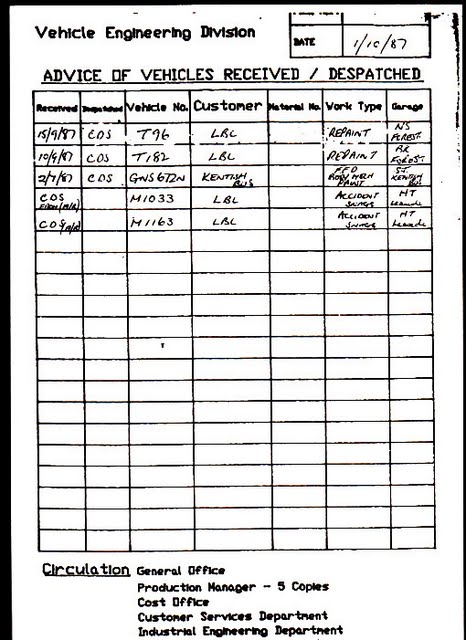 Vehicle Engineering Division
DATE 1/10/87
ADVICE OF VEHICLES RECEIVED / DESPATCHED
Received Despatched Vehicle No. Customer Material No. Work Type Garage
15/9/87 COS T96 LBL REPAINT NS FOREST
10/9/87 COS T182 LBL REPAINT FOREST
2/7/87 COS GNS 672N KENTISH BUS PAINT KENTISH BUS
COS M1033 LBL ACCIDENT HT
COS M1163 LBL ACCIDENT HT
Circulation General Office
Production Manager - 5 Copies
Cost Office
Customer Services Department
Industrial Engineering Department